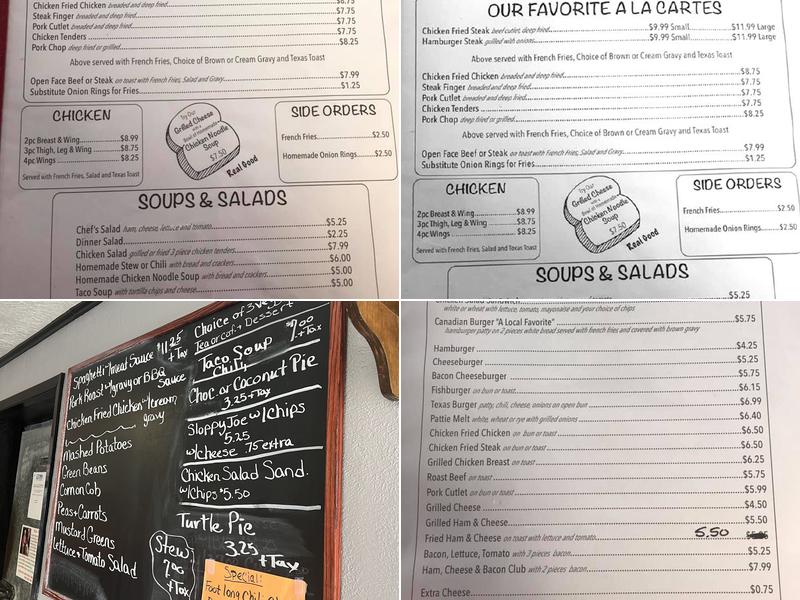 Chicken Fried Chicken breaded and deep fried $8.75
Steak Finger breaded and deep fried $7.75
Pork Cutlet breaded and deep fried $7.75
Chicken Tenders $7.75
Pork Chop deep fried or grilled $8.25
Above served with French Fries, Choice of Brown or Cream Gravy and Texas Toast
Open Face Beef or Steak on toast with French Fries, Salad and Gravy $7.99
Substitute Onion Rings for Fries $1.25
CHICKEN
2pc Breast & Wing $8.99
3pc Thigh, Leg & Wing $8.75
4pc Wings $8.25
Served with French Fries, Salad and Texas Toast
Try Our
Grilled Cheese
with a
Bowl of Homemade
Chicken Noodle
Soup
$7.50
Real Good
SIDE ORDERS
French Fries $2.50
Homemade Onion Rings $2.50
SOUPS & SALADS
Chef's Salad ham, cheese, lettuce and tomato $5.25
Dinner Salad $2.25
Chicken Salad grilled or fried 3 piece chicken tenders $7.99
Homemade Stew or Chili with bread and crackers $6.00
Homemade Chicken Noodle Soup with bread and crackers $5.00
Taco Soup with tortilla chips and cheese $5.00
OUR FAVORITE A LA CARTES
Chicken Fried Steak beef cutlet, deep fried $9.99 Small $11.99 Large
Hamburger Steak grilled with onions $9.99 Small $11.99 Large
Above served with French Fries, Choice of Brown or Cream Gravy and Texas Toast
Chicken Fried Chicken breaded and deep fried $8.75
Steak Finger breaded and deep fried $7.75
Pork Cutlet breaded and deep fried $7.75
Chicken Tenders $7.75
Pork Chop deep fried or grilled $8.25
Above served with French Fries, Choice of Brown or Cream Gravy and Texas Toast
Open Face Beef or Steak on toast with French Fries, Salad and Gravy $7.99
Substitute Onion Rings for Fries $1.25
CHICKEN
2pc Breast & Wing $8.99
3pc Thigh, Leg & Wing $8.75
4pc Wings $8.25
Served with French Fries, Salad and Texas Toast
Try Our
Grilled Cheese
with a
Bowl of Homemade
Chicken Noodle
Soup
$7.50
Real Good
SIDE ORDERS
French Fries $2.50
Homemade Onion Rings $2.50
SOUPS & SALADS
$5.25
Spaghetti w/meat Sauce $11.25
+ Tax
Pork Roast w/gravy or BBQ
Sauce
Chicken Fried Chicken w/cream
gravy
Mashed Potatoes
Green Beans
Corn on Cob
Peas + Carrots
Mustard Greens
Lettuce + Tomato Salad
Stew
7.00
+ Tax
Choice of 3 Veg
Tea or Cof. + Dessert
Taco Soup $7.00
+ Tax
Chili
Choc. or Coconut Pie
3.25 + Tax
Sloppy Joe w/chips
5.25
w/cheese .75 extra
Chicken Salad Sand.
w/chips $5.50
Turtle Pie
3.25
+ Tax
Special:
Foot long Chili
white or wheat with lettuce, tomato, mayonaise and your choice of chips
Canadian Burger "A Local Favorite" $5.75
hamburger patty on 2 pieces white bread served with french fries and covered with brown gravy
Hamburger $4.25
Cheeseburger $5.25
Bacon Cheeseburger $5.75
Fishburger on bun or toast $6.15
Texas Burger patty, chili, cheese, onions on open bun $6.99
Pattie Melt white, wheat or rye with grilled onions $6.40
Chicken Fried Chicken on bun or toast $6.50
Chicken Fried Steak on bun or toast $6.50
Grilled Chicken Breast on toast $6.25
Roast Beef on toast $5.75
Pork Cutlet on bun or toast $5.99
Grilled Cheese $4.50
Grilled Ham & Cheese $5.50
Fried Ham & Cheese on toast with lettuce and tomato 5.50
Bacon, Lettuce, Tomato with 3 pieces bacon $5.25
Ham, Cheese & Bacon Club with 2 pieces bacon $7.99
Extra Cheese $0.75